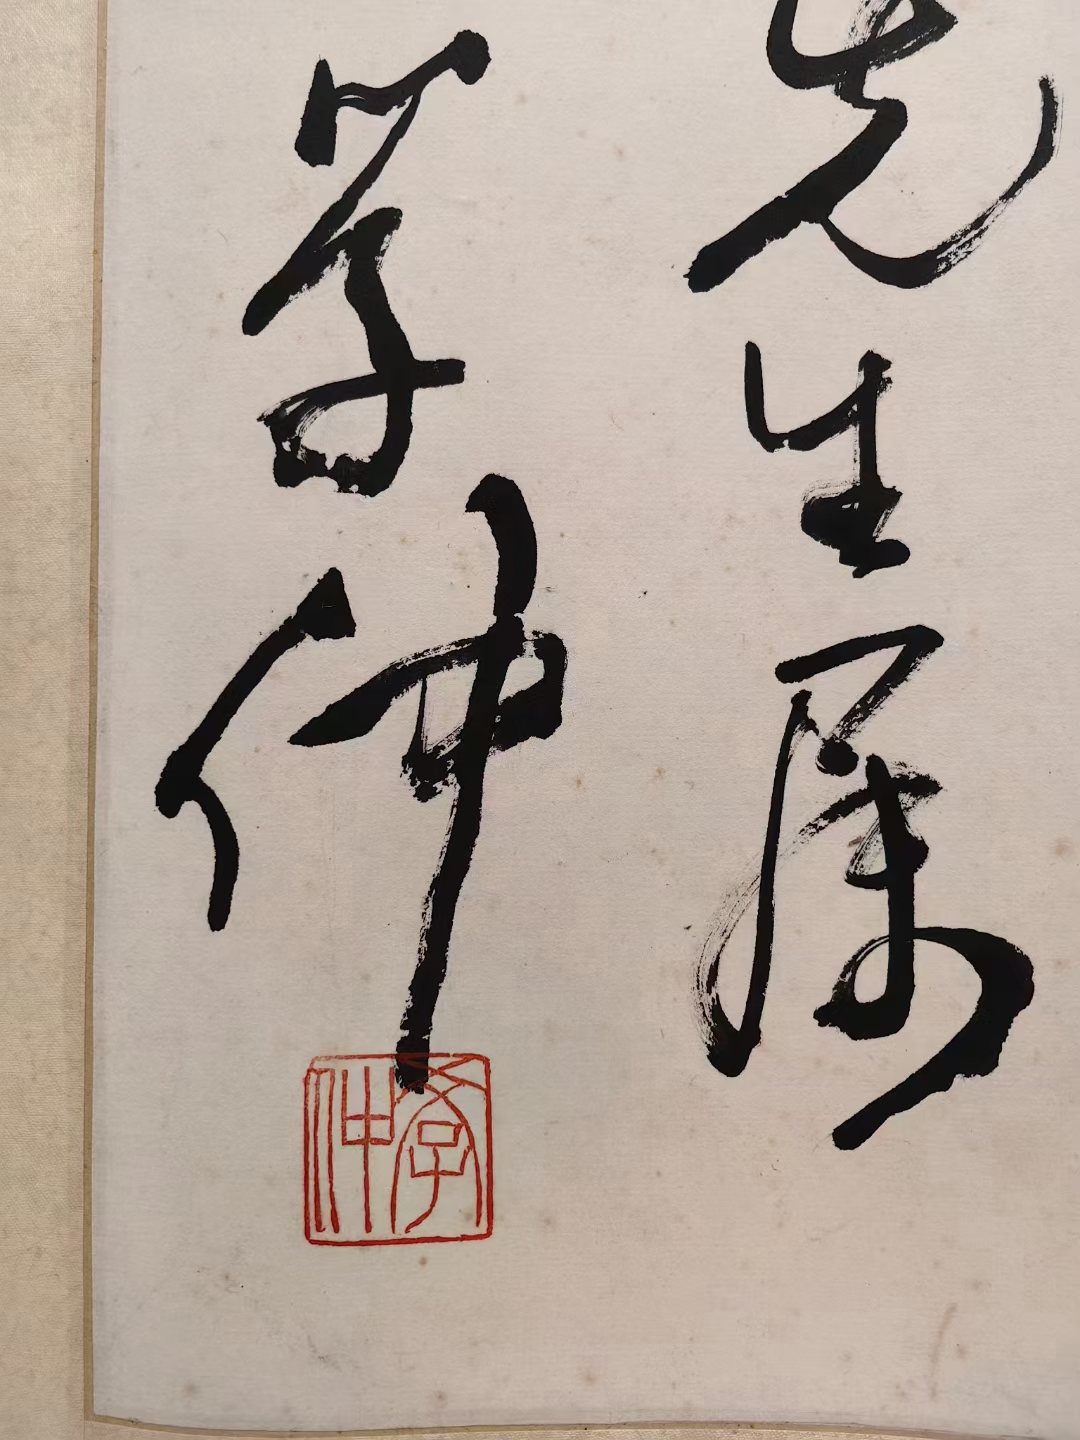 先生属
学仲
學仲